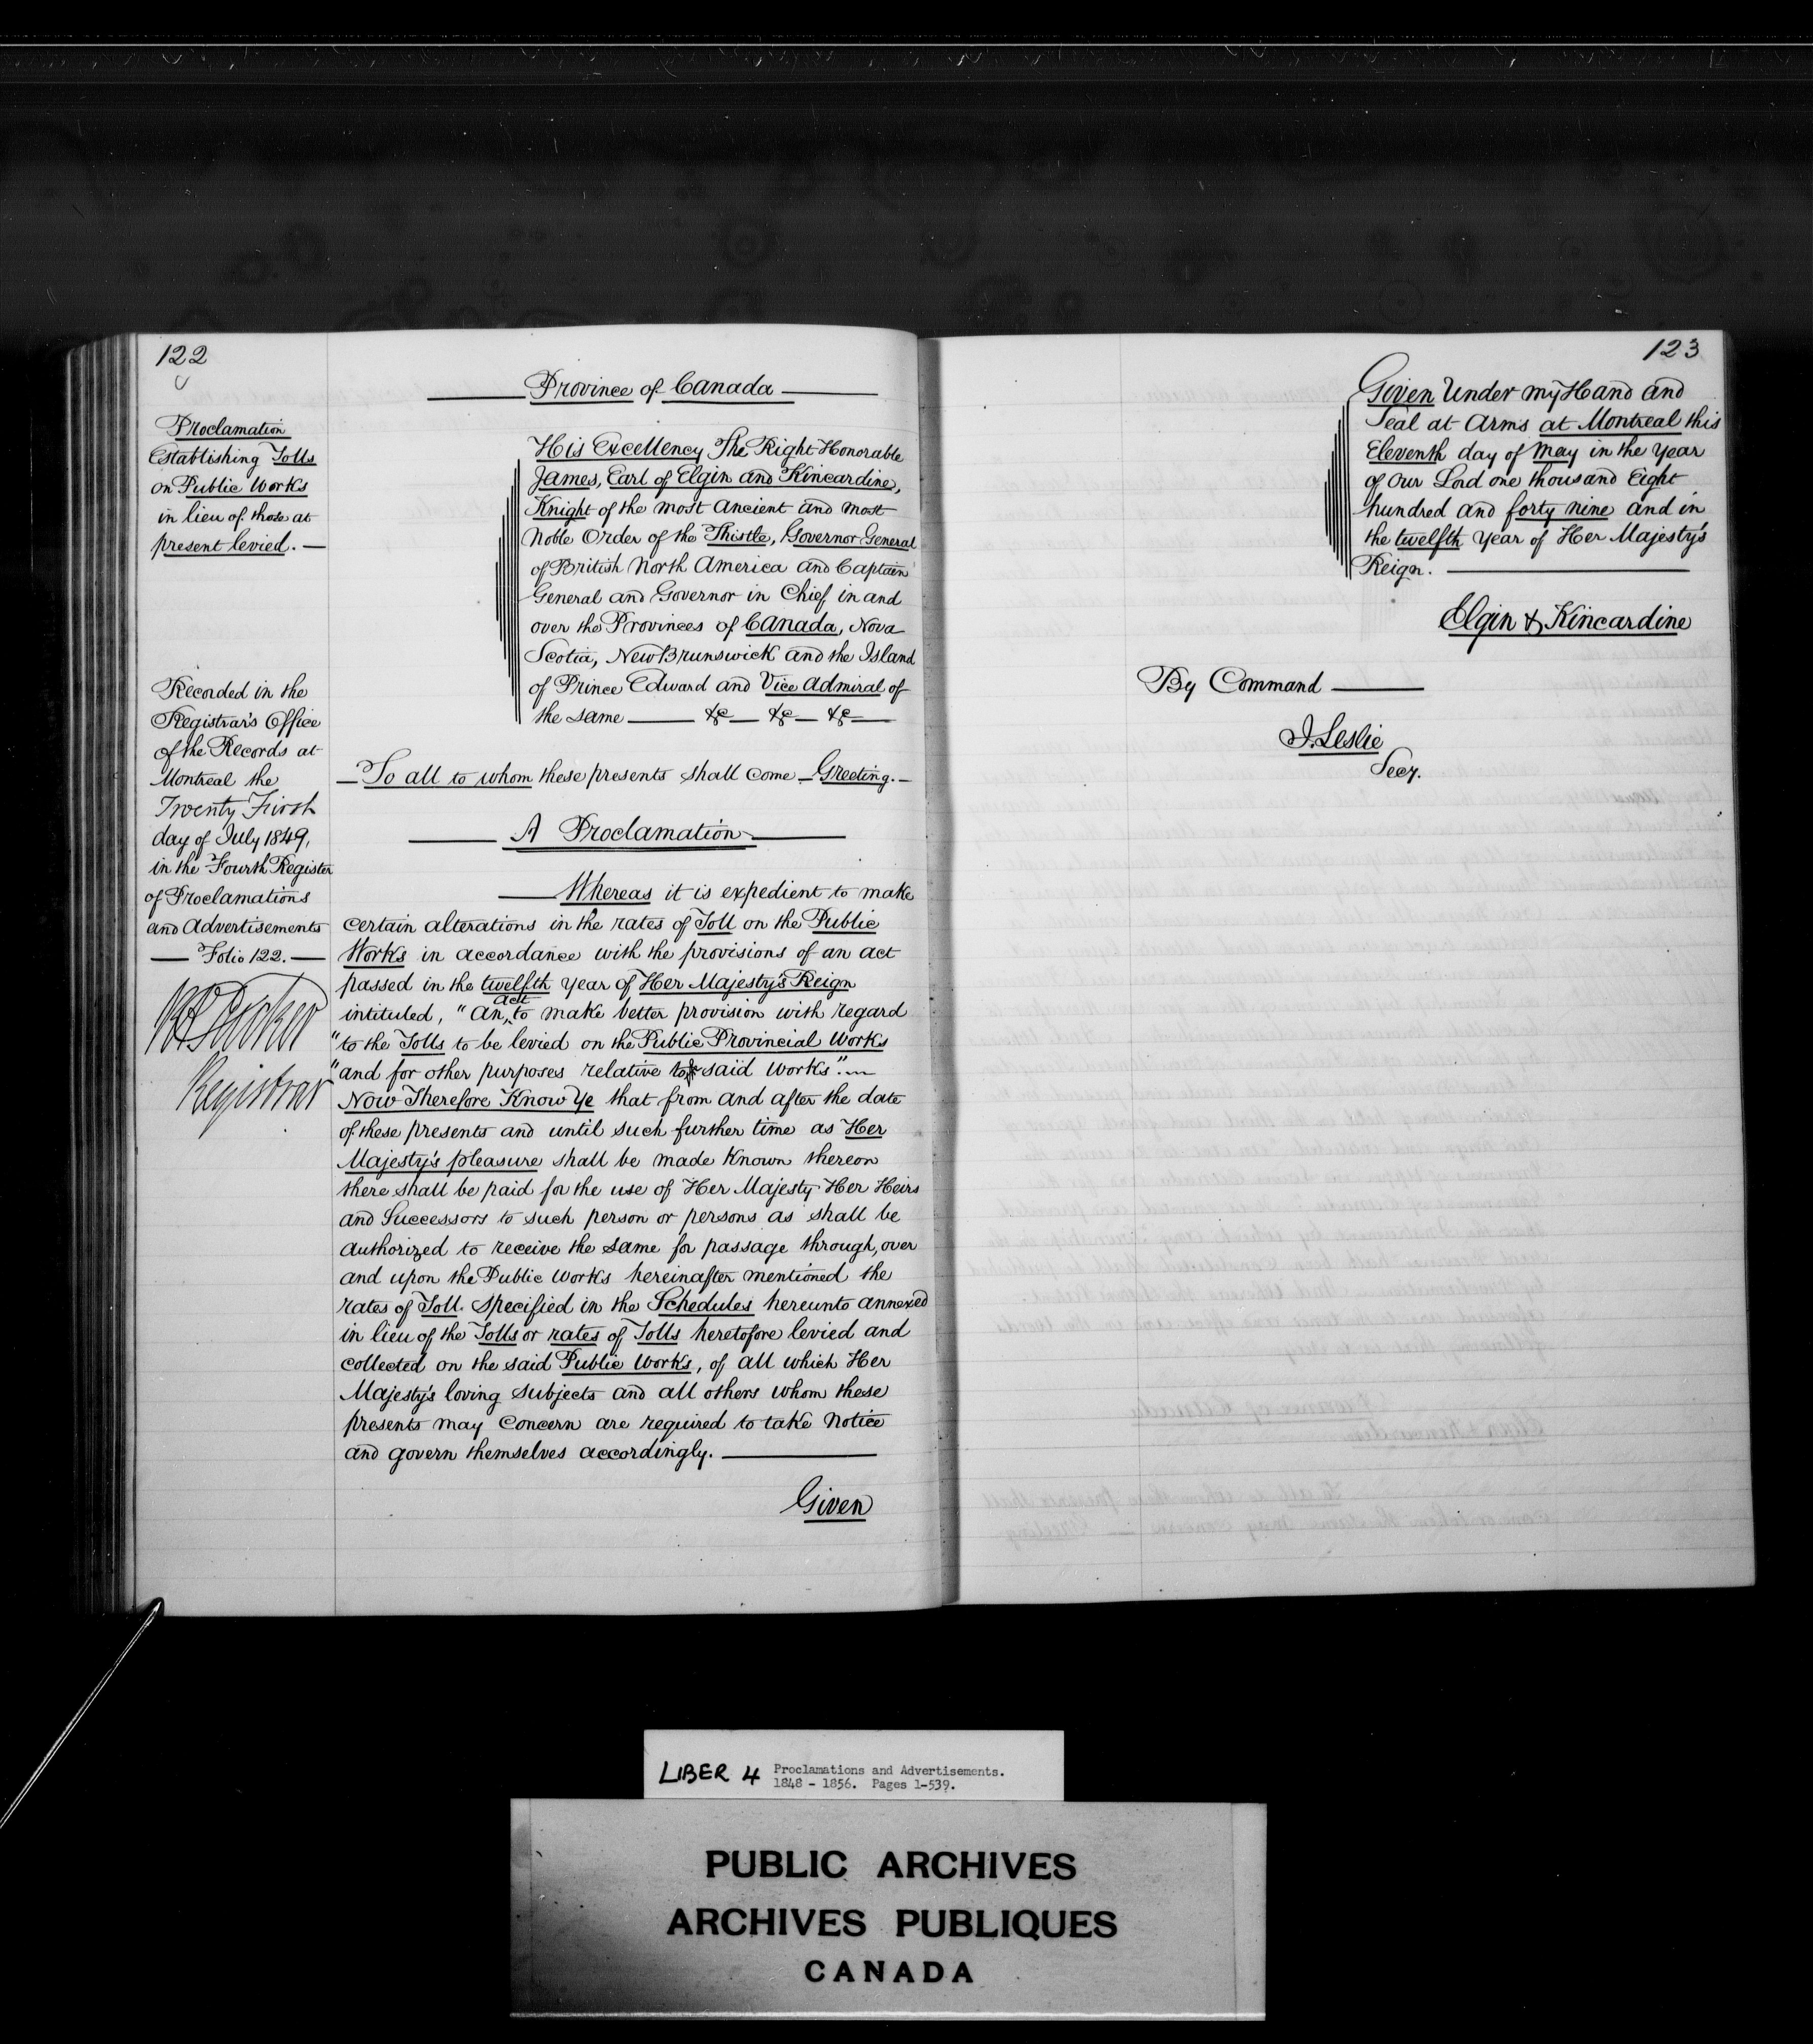 122
Province of Canada
Proclamation
Establishing Tolls
on Public Works
in lieu of those at
present levied. —
His Excellency The Right Honorable
James, Earl of Elgin and Kincardine,
Knight of the most Ancient and most
Noble Order of the Thistle, Governor General
of British North America and Captain
General and Governor in Chief in and
over the Provinces of Canada, Nova
Scotia, New Brunswick and the Island
of Prince Edward and Vice Admiral of
the same — &c — &c — &c —
Recorded in the
Registrar's Office
of the Records at
Montreal the
Twenty First
day of July 1849,
in the Fourth Register
of Proclamations
and Advertisements
— Folio 122. —
Registrar
— To all to whom these presents shall come — Greeting. —
A Proclamation
— Whereas it is expedient to make
certain alterations in the rates of Toll on the Public
Works in accordance with the provisions of an act
passed in the twelfth year of Her Majesty's Reign
intituled, "An act to make better provision with regard
"to the Tolls to be levied on the Public Provincial Works
"and for other purposes relative to said Works". —
Now Therefore Know Ye that from and after the date
of these presents and until such further time as Her
Majesty's pleasure shall be made known thereon
there shall be paid for the use of Her Majesty Her Heirs
and Successors to such person or persons as shall be
authorized to receive the same for passage through, over
and upon the Public Works hereinafter mentioned the
rates of Toll specified in the Schedules hereunto annexed
in lieu of the Tolls or rates of Tolls heretofore levied and
collected on the said Public Works, of all which Her
Majesty's loving subjects and all others whom these
presents may concern are required to take notice
and govern themselves accordingly. —
Given
123
Given Under my Hand and
Seal at Arms at Montreal this
Eleventh day of May in the year
of our Lord one thousand Eight
hundred and forty nine and in
the twelfth year of Her Majesty's
Reign. —
Elgin & Kincardine
By Command —
J. Leslie
Secy.
LIBER 4 Proclamations and Advertisements.
1848 - 1856. Pages 1-539.
PUBLIC ARCHIVES
ARCHIVES PUBLIQUES
CANADA